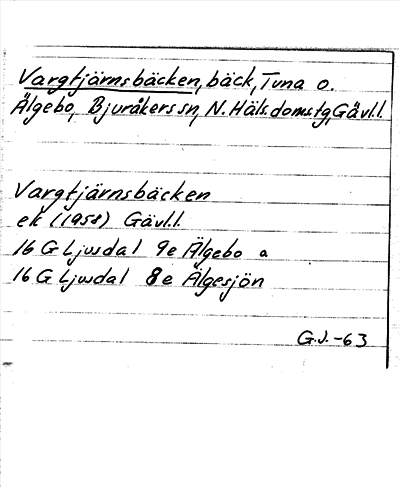 Vargtjärnsbäcken, bäck, Tuna o.
Älgebo, Bjuråkers sn, N. Häls. doms.tg, Gävl.l.
Vargtjärnsbäcken
ek (1958) Gävl.l.
16 G Ljusdal 9e Älgebo a
16 G Ljusdal 8e Älgesjön
G.J. -63